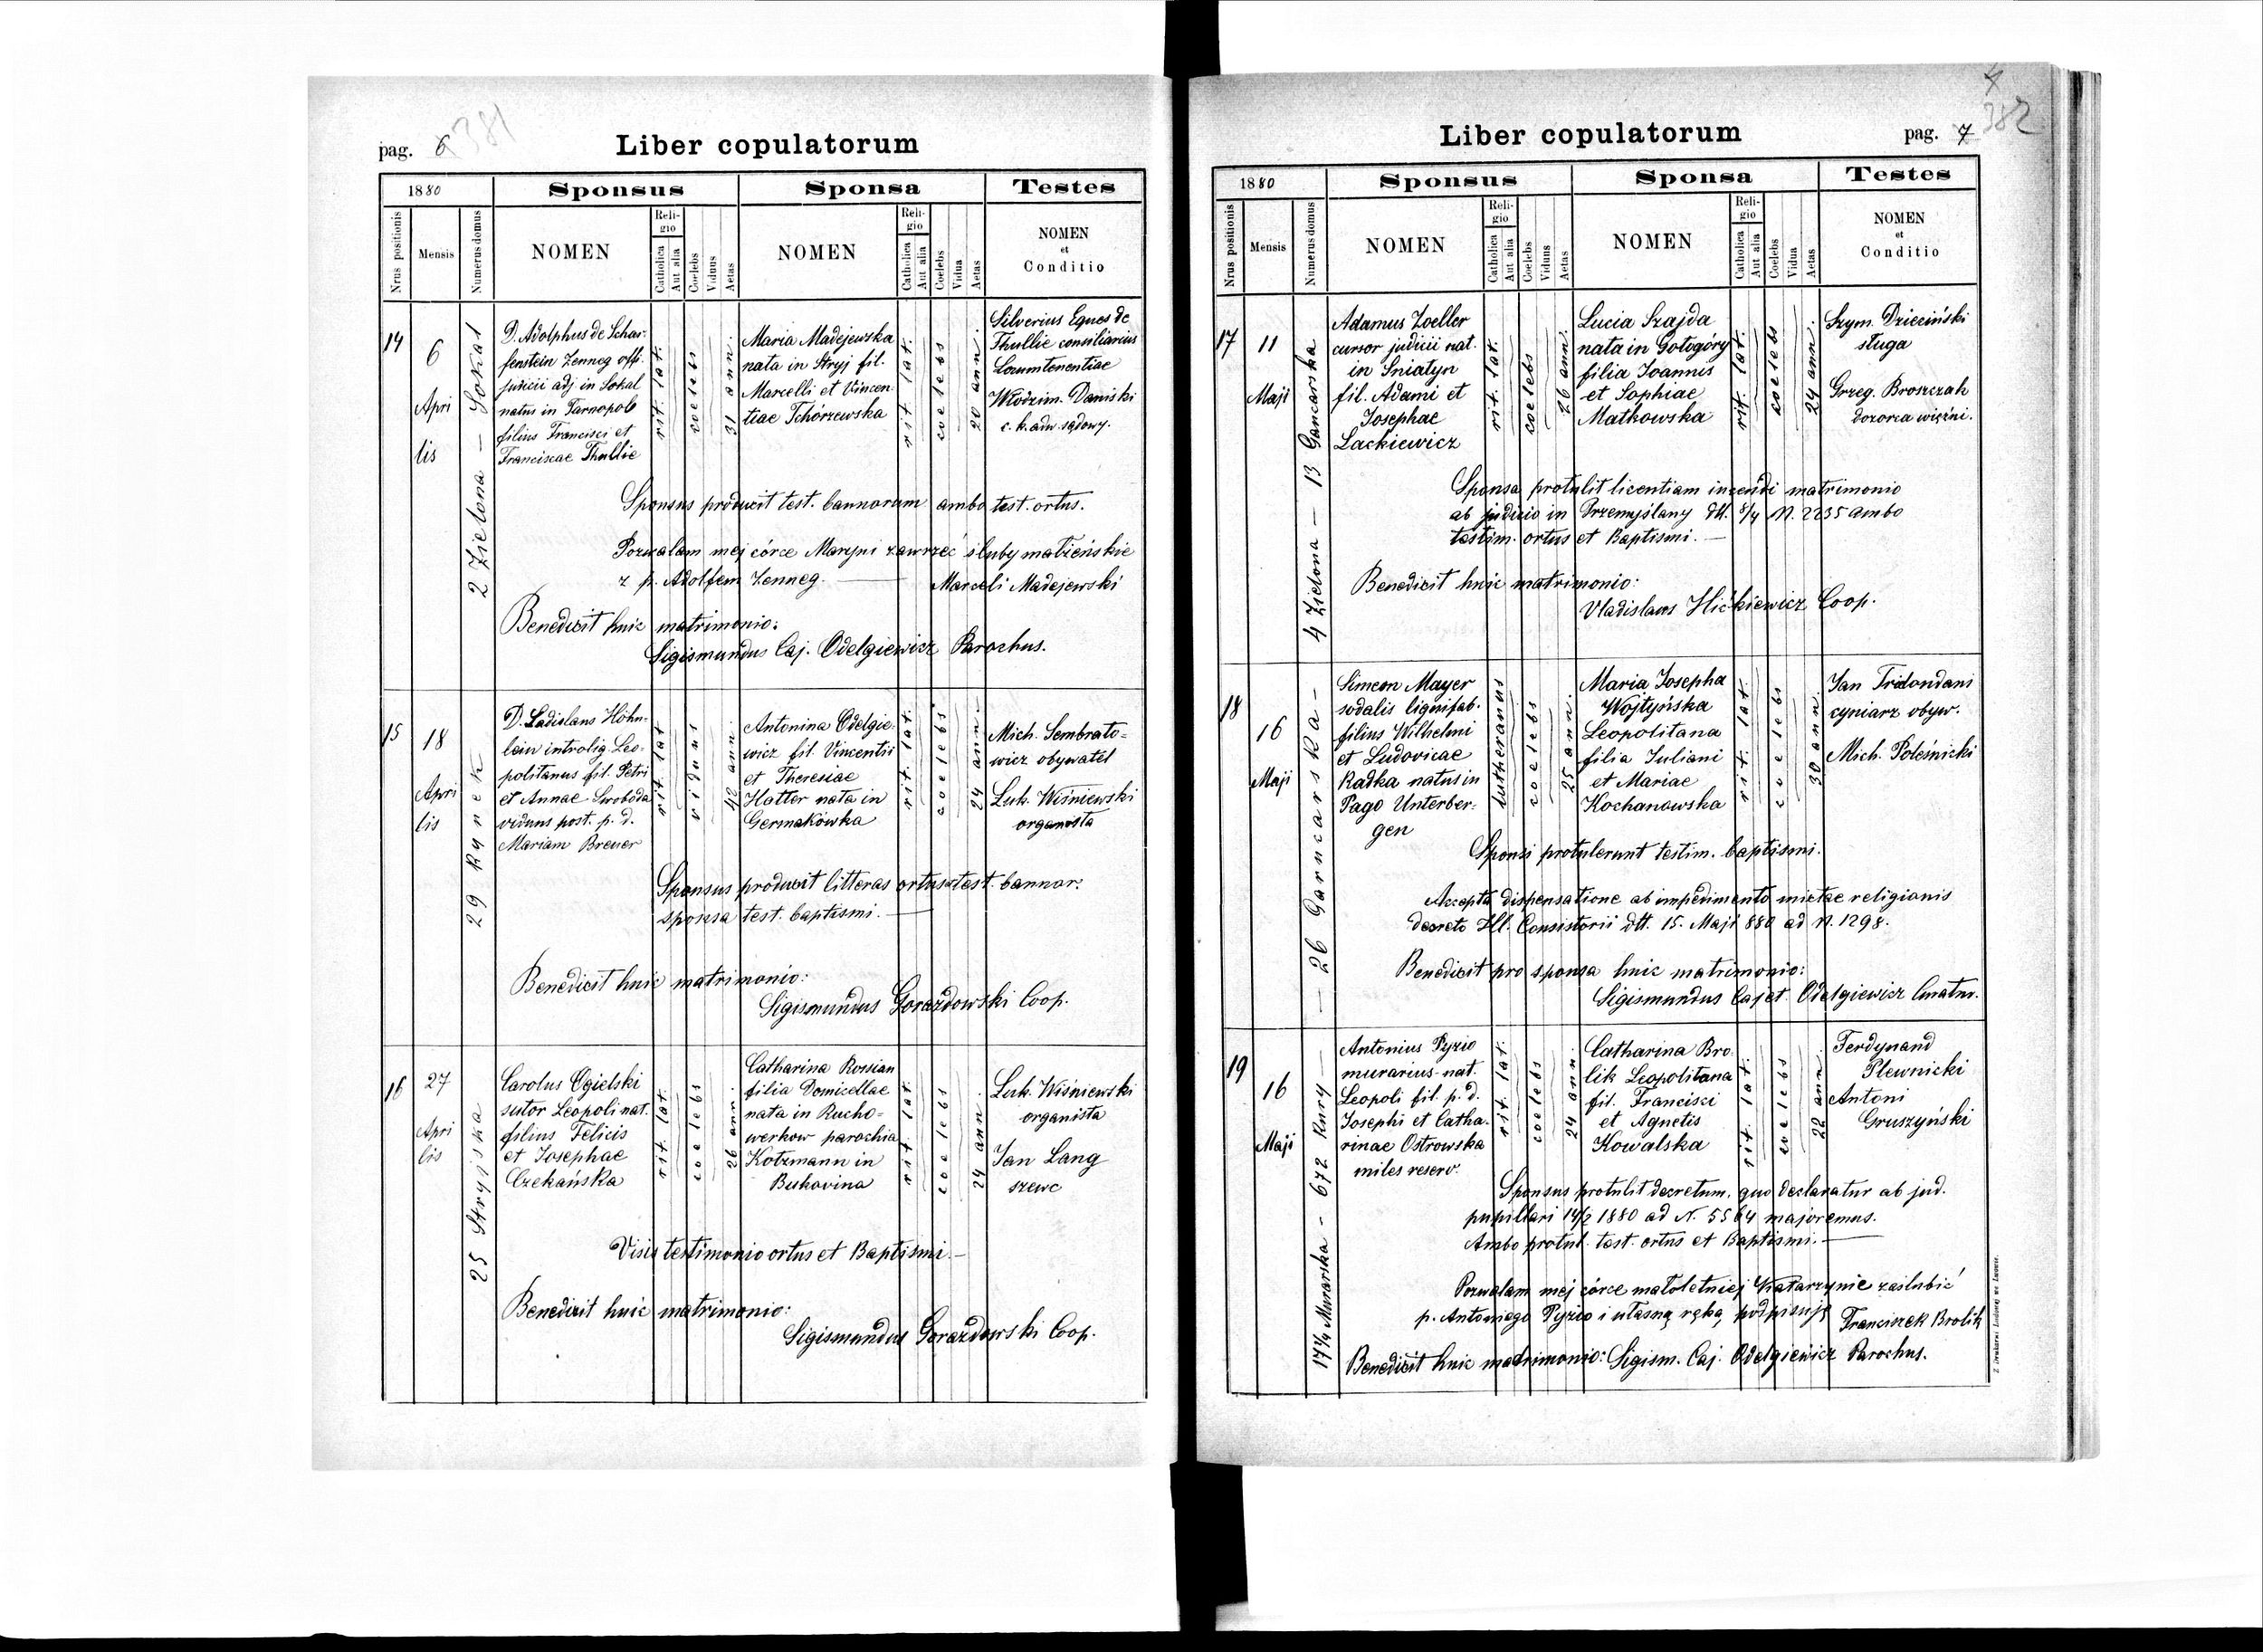 pag. 6
381
Liber copulatorum
1880
Sponsus
Sponsa
Testes
Nrus positionis
Mensis
Numerus domus
NOMEN
Religio
Catholica
Aut alia
Coelebs
Viduus
Aetas
NOMEN
Religio
Catholica
Aut alia
Coelebs
Vidua
Aetas
NOMEN
et
Conditio
14
6
Apri
lis
2 Zielona — Sokal
D. Adolphus de Schar-
fenstein Zenneg off.
judicii adj in Sokal
natus in Tarnopol
filius Francisci et
Franciscae Thullie
rit. lat.
coelebs
31 ann.
Maria Madejewska
nata in Stryj fil.
Marcelli et Vincen
tiae Tchórzewska
rit. lat.
coelebs
20 ann.
Silverius Eques de
Thullie consiliarius
Locumtenentiae
Włodzim. Daniski
c. k. adw. sądowy.
Sponsus produxit test. bannorum ambo test. ortus.
Pozwalam mej córce Maryni zawrzeć śluby małżeńskie
z p. Adolfem Zenneg. — Marceli Madejewski
Benedixit huic matrimonio:
Sigismundus Caj. Odelgiewicz Parochus.
15
18
Apri
lis
29 Rynek
D. Ladislaus Höhn-
lein introlig. Leo-
politanus fil. Petri
et Annae Swoboda
viduus post. p. d.
Mariam Breuer
rit. lat
viduus
42 ann
Antonina Odelgie-
wicz fil. Vincentii
et Theresiae
Hatter nata in
Germakówka
rit. lat.
coelebs
24 ann.
Mich. Sembrato=
wicz obywatel
Luk. Wiśniewski
organista
Sponsus produxit litteras ortus et test. bannor.
sponsa test. baptismi. —
Benedixit huic matrimonio:
Sigismundus Gorazdowski Coop.
16
27
Apri
lis
25 Stryjska
Carolus Ogielski
sutor Leopoli nat.
filius Felicis
et Josephae
Czekańska
rit. lat.
coelebs
26 ann.
Catharina Rossian
filia Domicellae
nata in Rucho=
werkow parochia
Kotzmann in
Bukovina
rit lat
coelebs
24 ann.
Luk. Wiśniewski
organista
Jan Lang
szewc
Visis testimonio ortus et Baptismi. —
Benedixit huic matrimonio:
Sigismundus Gorazdowski Coop.
382
Liber copulatorum
pag. 7
1880
Sponsus
Sponsa
Testes
Nrus positionis
Mensis
Numerus domus
NOMEN
Religio
Catholica
Aut alia
Coelebs
Viduus
Aetas
NOMEN
Religio
Catholica
Aut alia
Coelebs
Vidua
Aetas
NOMEN
et
Conditio
17
11
Maji
4 Zielona — 13 Gancarska
Adamus Zoeller
cursor judicii nat.
in Sniatyn
fil. Adami et
Josephae
Lackiewicz
rit. lat.
coelebs
26 ann.
Lucia Szajda
nata in Gołogóry
filia Joannis
et Sophiae
Matkowska
rit. lat.
coelebs
24 ann.
Szym. Dzieziński
sługa
Grzeg. Broszczak
dozorca więźni.
Sponsa protulit licentiam ineundi matrimonio
ab judicio in Przemyślany dtt. 8/4 N. 2235 ambo
testim. ortus et Baptismi. —
Benedixit huic matrimonio:
Vladislaus Hićkiewicz Coop.
18
16
Maji
— 26 Garncarska —
Simeon Mayer
sodalis lignifab.
filius Wilhelmi
et Ludovicae
Radka natus in
Pago Unterber-
gen
lutheranus
coelebs
25 ann.
Maria Josepha
Wojtyńska
Leopolitana
filia Juliani
et Mariae
Kochanowska
rit. lat.
coelebs
30 ann.
Jan Tridondani
cyniarz obyw.
Mich. Poleśnicki
Sponsi protulerunt testim. baptismi.
Accepta dispensatione ab impedimento mixtae religionis
decreto Ill. Consistorii dtt. 15. Maji 880 ad N. 1298.
Benedixit pro sponsa huic matrimonio:
Sigismundus Cajet. Odelgiewicz Curatus.
19
16
Maji
17 1/4 Murarska - 672 Kury —
Antonius Pyzio
murarius nat.
Leopoli fil. p. d.
Josephi et Catha-
rinae Ostrowska
miles reserv.
rit. lat.
coelebs
24 ann
Catharina Bro-
lik Leopolitana
fil. Francisci
et Agnetis
Kowalska
rit. lat.
coelebs
22 ann.
Ferdynand
Plewnicki
Antoni
Gruszyński
Sponsus protulit decretum, quo declaratur ab jud.
pupillari 14/2 1880 ad N. 5564 majoremus.
Ambo protul. test. ortus et Baptismi. —
Pozwalam mej córce małoletniej Katarzynie zaślubić
p. Antoniego Pyzio i własną ręką podpisuję Franciszek Brolik
Benedixit huic matrimonio: Sigism. Caj. Odelgiewicz Parochus.
Z Drukarni Ludowej we Lwowie.